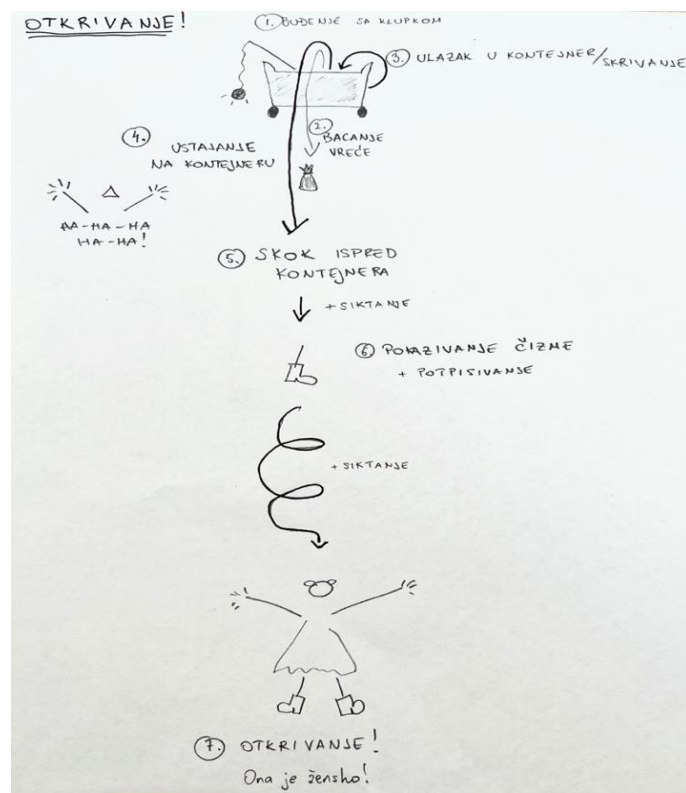 OTKRIVANJE!
1. BUĐENJE SA KLUPKOM
3. ULAZAK U KONTEJNER/SKRIVANJE
2. BACANJE
VREĆE
4. USTAJANJE
NA KONTEJNERU
AA-HA-HA
HA-HA!
5. SKOK ISPRED
KONTEJNERA
+ SIKTANJE
6 POKAZIVANJE ČIZME
+ POTPISIVANJE
+ SIKTANJE
7. OTKRIVANJE!
Ona je žensko!